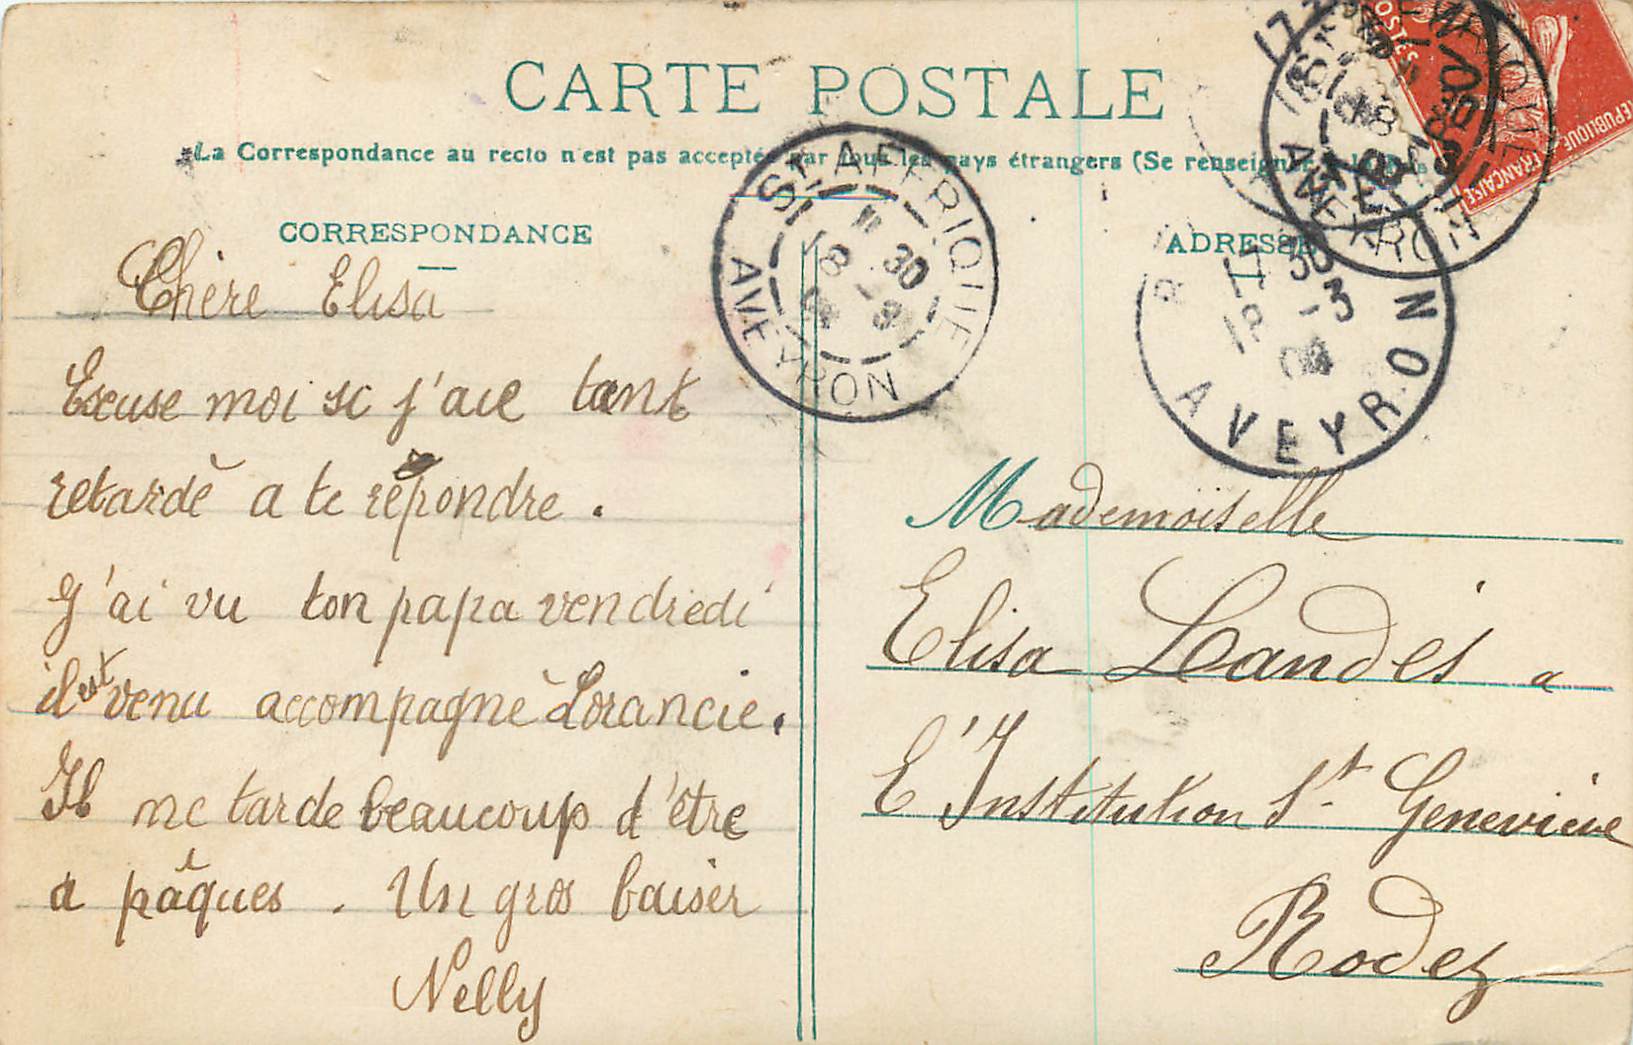 CARTE POSTALE
La Correspondance au recto n'est pas acceptée par tous les pays étrangers (Se renseigner à la Poste
CORRESPONDANCE
ADRESSE
Chère Elisa
Escuse moi si j'aie tant
retardé a te répondre.
J'ai vu ton papa vendredi
il est venu accompagné Lorancie.
Il me tarde beaucoup d'être
a pâques. Un gros baiser
Nelly
Mademoiselle
Elisa Landès a
L'Institution St Geneviève
Rodez
ST AFFRIQUE
11 30
18 - 3
AVEYRON
17 30
18 - 3
09
AVEYRON
AFFRIQUE
AVEYRON
POSTES
REPUBLIQUE FRANÇAISE